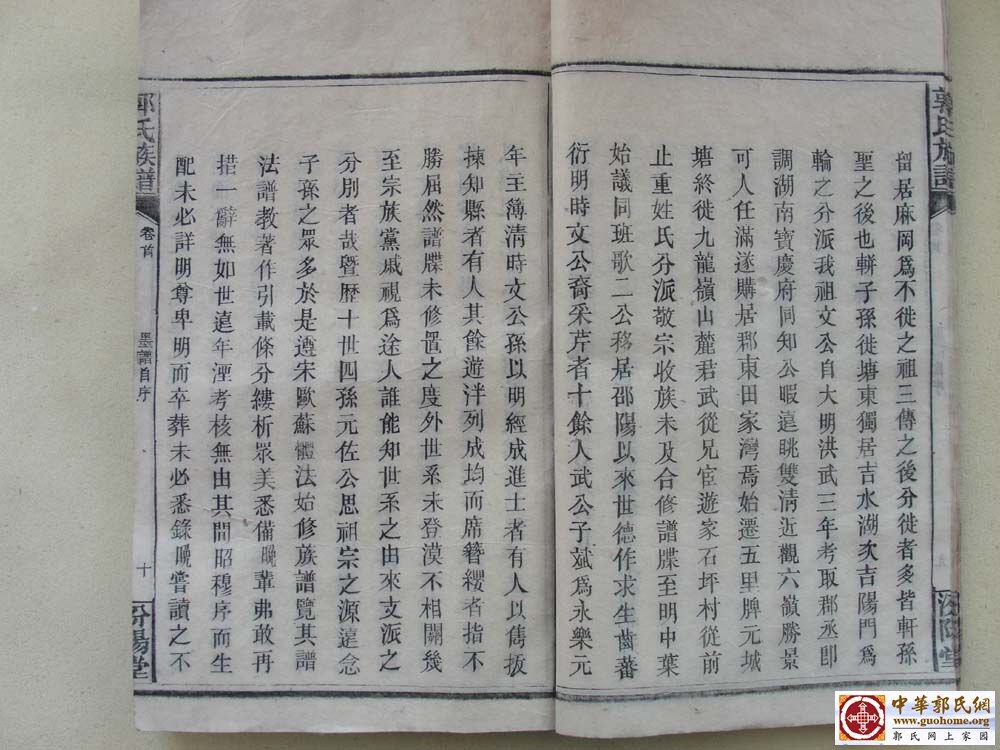 郭氏族譜
留居麻岡爲不徙之祖三傳之後分徙者多皆軒孫
聖之後也軿子孫徙塘東獨居吉水湖次吉陽門爲
輪之分派我祖文公自大明洪武三年考取郡丞卽
調湖南寶慶府同知公暇遠眺雙清近觀六嶺勝景
可人任滿遂購居郡東田家灣焉始遷五里牌元城
塘終徙九龍嶺山麓君武從兄宦遊家石坪村從前
止重姓氏分派敬宗收族未及合修譜牒至明中葉
始議同班歌二公移居邵陽以來世德作求生齒蕃
衍明時文公裔采芹者十餘人武公子斌爲永樂元
汾陽堂
年主簿清時文公孫以明經成進士者有人以雋拔
揀知縣者有人其餘遊泮列成均而席簪纓者指不
勝屈然譜牒未修置之度外世系未登漠不相關幾
至宗族黨戚視爲途人誰能知世系之由來支派之
分別者哉暨歷十世四孫元佐公思祖宗之源遠念
子孫之眾多於是遵宋歐蘇體法始修族譜覽其譜
法譜教著作引載條分縷析眾美悉備晚輩弗敢再
措一辭無如世遠年湮考核無由其間昭穆序而生
配未必詳明尊卑明而卒葬未必悉錄晚嘗讀之不
郭氏族譜
卷首
墨譜自序
十
汾陽堂
中華郭氏網
www.guohome.org
郭氏网上家園